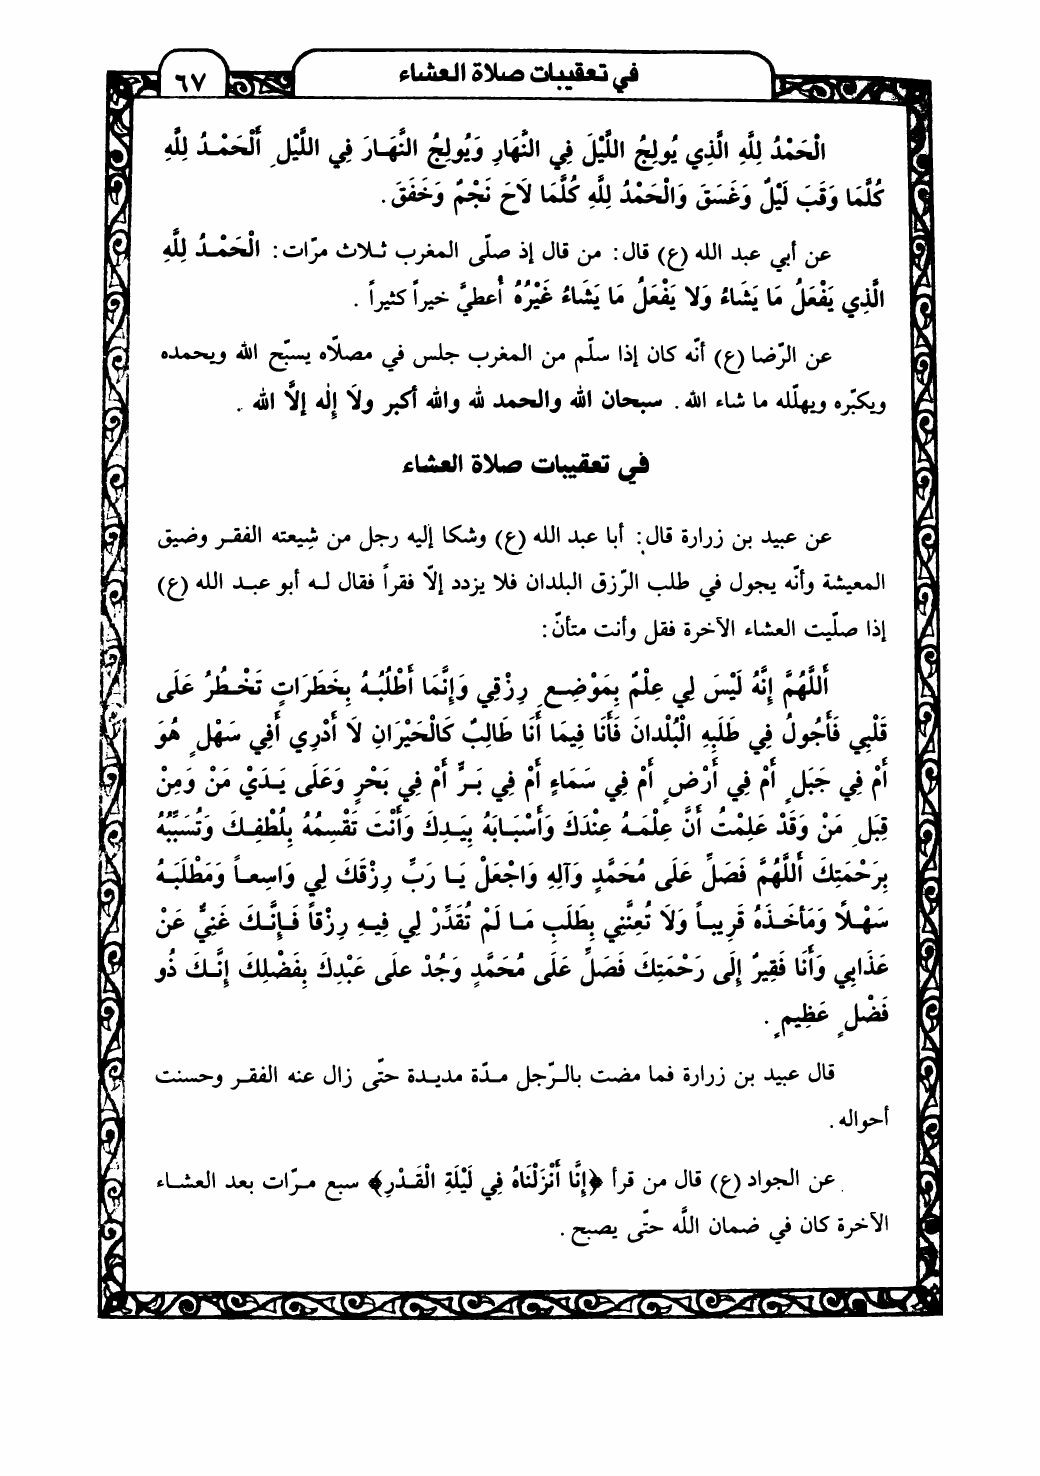 في تعقيبات صلاة العشاء
٦٧
الْحَمْدُ لِلَّهِ الَّذِي يُولِجُ اللَّيْلَ فِي النَّهَارِ وَيُولِجُ النَّهَارَ فِي اللَّيْلِ أَلْحَمْدُ لِلَّهِ
كُلَّمَا وَقَبَ لَيْلٌ وَغَسَقَ وَالْحَمْدُ لِلَّهِ كُلَّمَا لاَحَ نَجْمٌ وَخَفَقَ.
عن أبي عبد الله (ع) قال: من قال إذ صلّى المغرب ثلاث مرّات: الْحَمْدُ لِلَّهِ
الَّذِي يَفْعَلُ مَا يَشَاءُ وَلا يَفْعَلُ مَا يَشَاءُ غَيْرُهُ أُعطيَّ خيراً كثيراً.
عن الرّضا (ع) أنّه كان إذا سلّم من المغرب جلس في مصلّاه يسبّح الله ويحمده
ويكبّره ويهلّله ما شاء الله. سبحان الله والحمد لله والله أكبر ولَا إلٰه إلاَّ الله.
في تعقيبات صلاة العشاء
عن عبيد بن زرارة قال: أبا عبد الله (ع) وشكا إليه رجل من شِيعته الفقر وضيق
المعيشة وأنّه يجول في طلب الرّزق البلدان فلا يزدد إلّا فقراً فقال له أبو عبد الله (ع)
إذا صلّيت العشاء الآخرة فقل وأنت متأنّ:
أَللَّهُمَّ إِنَّهُ لَيْسَ لِي عِلْمٌ بِمَوْضِعِ رِزْقِي وَإِنَّمَا أَطْلُبُهُ بِخَطَرَاتٍ تَخْطُرُ عَلَى
قَلْبِي فَأَجُولُ فِي طَلَبِهِ الْبُلْدانَ فَأَنَا فِيمَا أَنَا طَالِبٌ كَالْحَيْرَانِ لَا أَدْرِي أَفِي سَهْلٍ هُوَ
أَمْ فِي جَبَلٍ أَمْ فِي أَرْضٍ أَمْ فِي سَمَاءٍ أَمْ فِي بَرٍّ أَمْ فِي بَحْرٍ وَعَلَى يَدَيْ مَنْ وَمِنْ
قِبَلِ مَنْ وَقَدْ عَلِمْتُ أَنَّ عِلْمَهُ عِنْدَكَ وَأَسْبَابَهُ بِيَدِكَ وَأَنْتَ تَقْسِمُهُ بِلُطْفِكَ وَتُسَبِّبُهُ
بِرَحْمَتِكَ أَللَّهُمَّ فَصَلِّ عَلَى مُحَمَّدٍ وَآلِهِ وَاجْعَلْ يَا رَبِّ رِزْقَكَ لِي وَاسِعاً وَمَطْلَبَهُ
سَهْلاً وَمَأْخَذَهُ قَرِيباً وَلَا تُعِنَّنِي بِطَلَبِ مَا لَمْ تُقَدِّرْ لِي فِيهِ رِزْقاً فَإِنَّكَ غَنِيٌّ عَنْ
عَذَابِي وَأَنَا فَقِيرٌ إِلَى رَحْمَتِكَ فَصَلِّ عَلَى مُحَمَّدٍ وَجُدْ على عَبْدِكَ بِفَضْلِكَ إِنَّكَ ذُو
فَضْلٍ عَظِيمٍ.
قال عبيد بن زرارة فما مضت بالرّجل مدّة مديدة حتّى زال عنه الفقر وحسنت
أحواله.
عن الجواد (ع) قال من قرأ ﴿إِنَّا أَنْزَلْنَاهُ فِي لَيْلَةِ الْقَدْرِ﴾ سبع مرّات بعد العشاء
الآخرة كان في ضمان اللَّه حتّى يصبح.